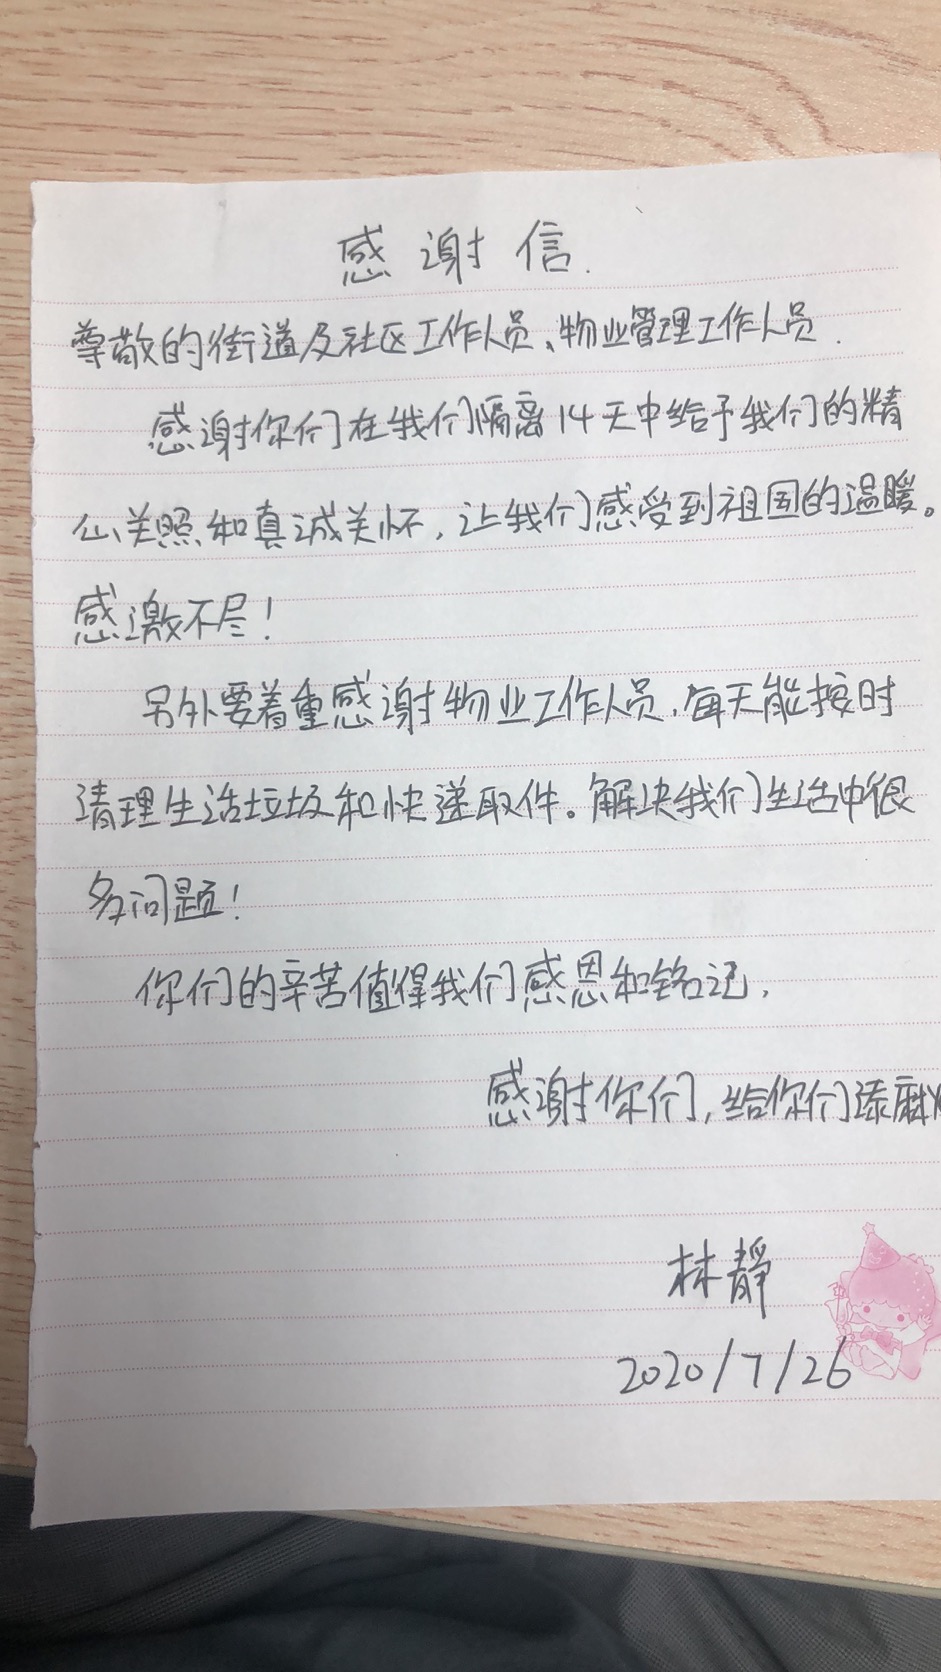 感谢信.
尊敬的街道及社区工作人员、物业管理工作人员.
感谢你们在我们隔离14天中给予我们的精
心关照和真诚关怀,让我们感受到祖国的温暖。
感激不尽!
另外要着重感谢物业工作人员,每天能按时
清理生活垃圾和快递取件。解决我们生活中很
多问题!
你们的辛苦值得我们感恩和铭记,
感谢你们,给你们添麻
林静
2020/7/26